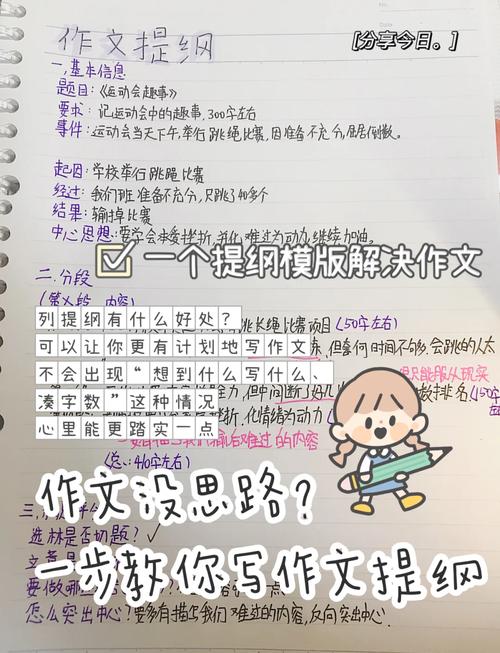 作文提纲
[分享今日。]
一,基本信息
题目:《运动会趣事》
要求:记运动会中的趣事,300字左右
事件:运动会当天下午,举行跳绳比赛,因准备不充分,屈居倒数。
起因:学校举行跳绳比赛
经过:我们班准备不充分,只跳了40多个
结果:输掉比赛
中心思想:要学会承受挫折,并化难过为动力,继续加油。
一个提纲模版解决作文
二.分段
内容)
列提纲有什么好处?
跳长绳比赛项目(50字左右)
可以让你更有计划地写作文
但奈何时间不够多,会跳的人太
不会出现“想到什么写什么、
只能服从现实
但中间断了好几
数排名(150字
凑字数”这种情况
挫折,化情绪为动力
心里能更踏实一点
后难过的内容
(总:410字左右)
作文没思路?
选材是否切题?✓
一步教你写作文提纲
要做哪
点
怎么突出中心?要多有描写我们难过的内容,反向突出中心.